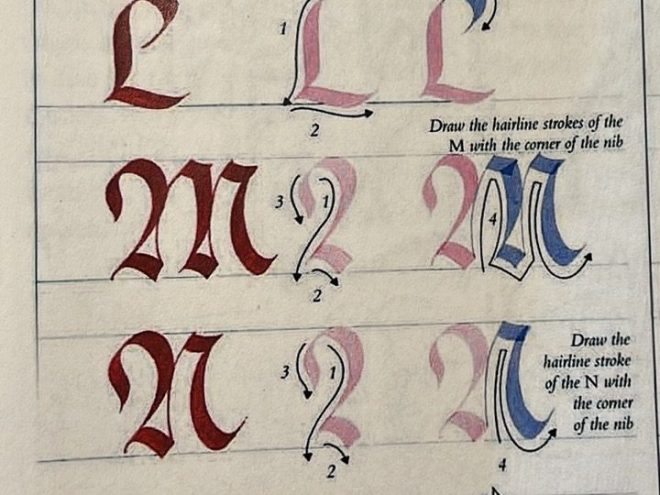 L 1 L L
2
Draw the hairline strokes of the
M with the corner of the nib
M 3 1 M 4
2
Draw the
hairline stroke
of the N with
the corner
of the nib
N 3 1 N
2 4